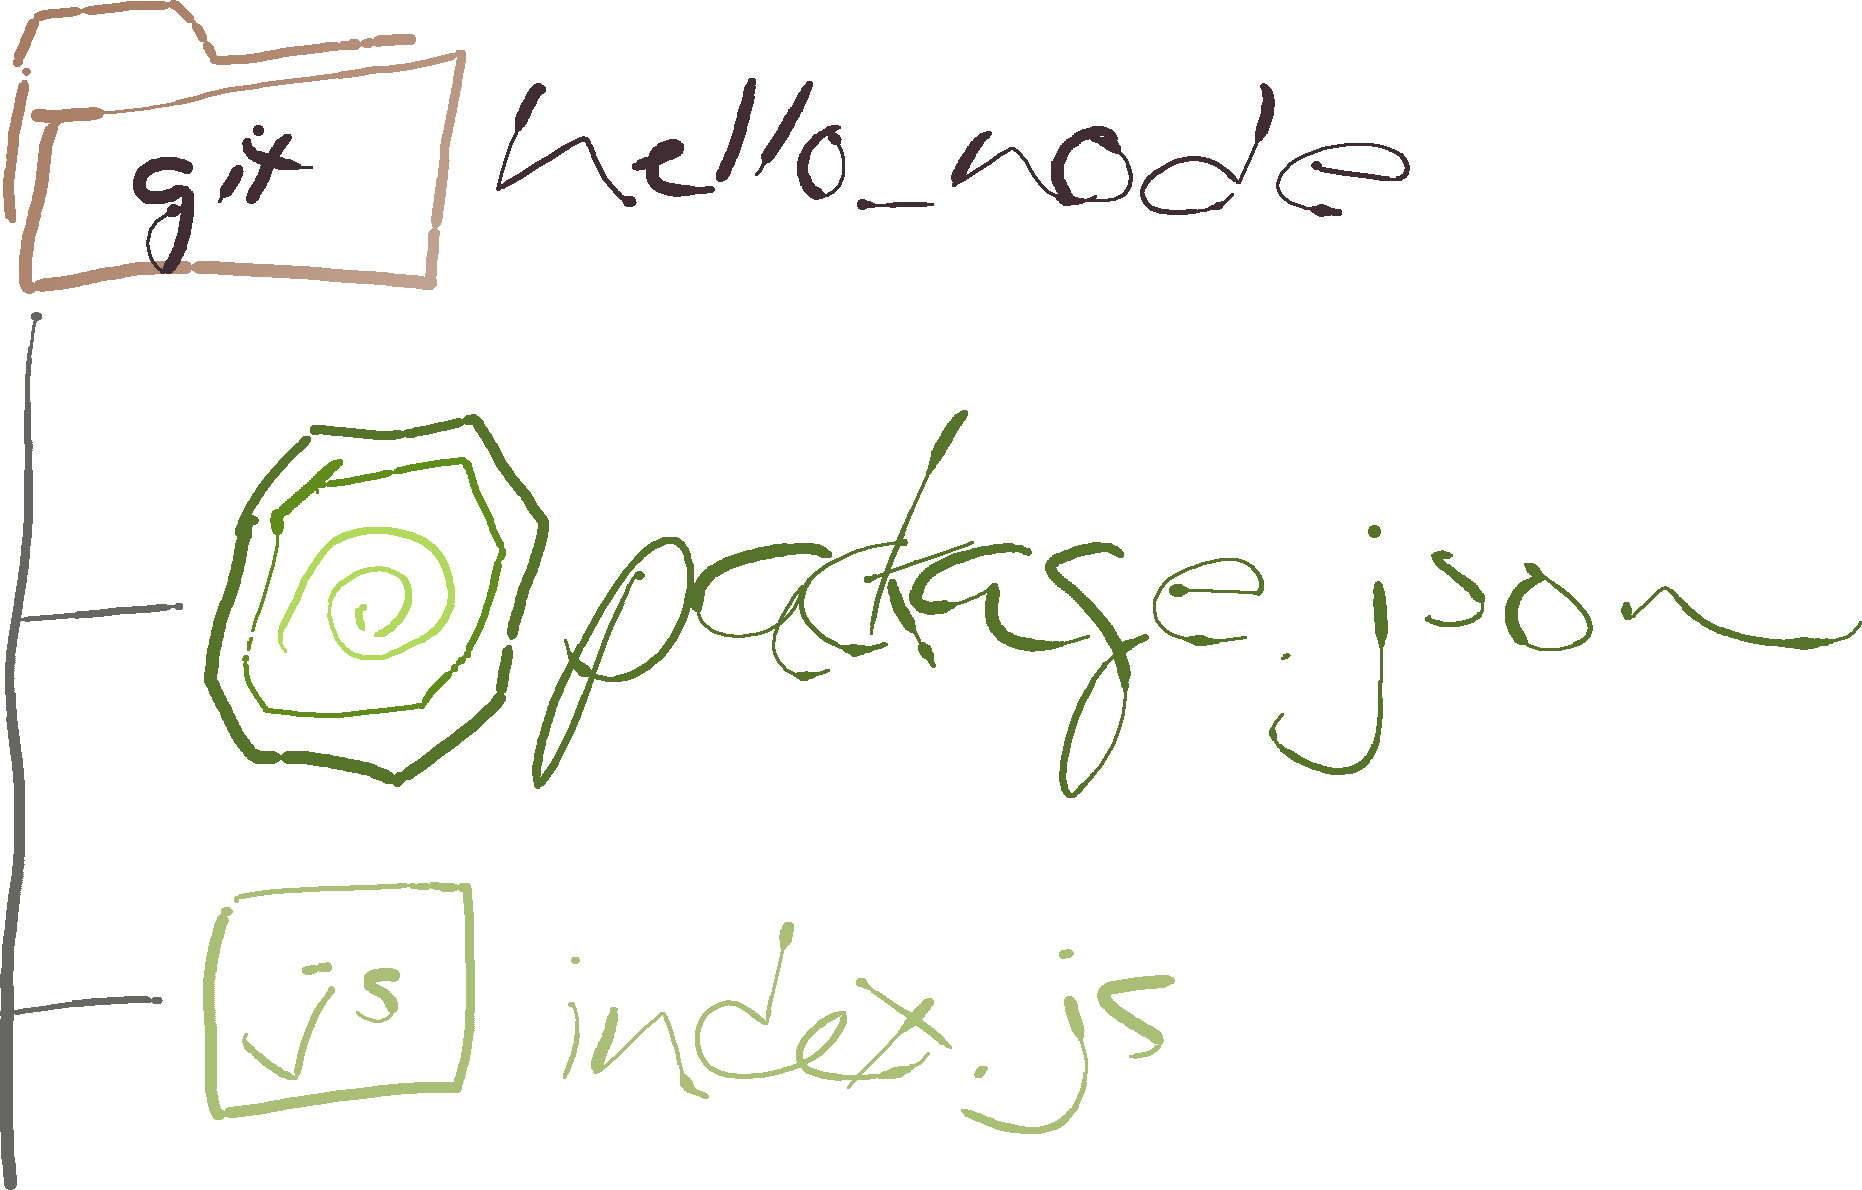 git hello_node
package.json
js index.js